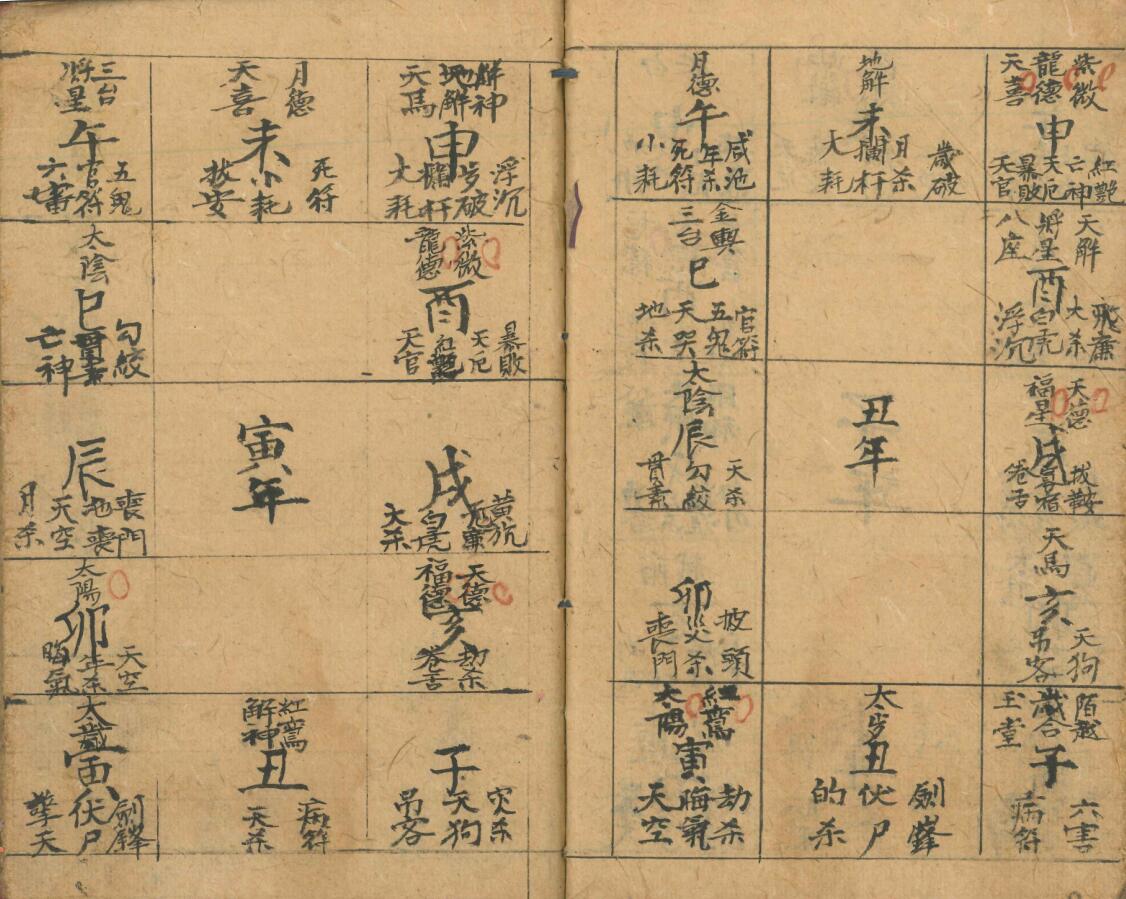 紫微
龍德
天喜
申
紅艷
亡神
天厄
暴敗
天官
地解
未
歲破
月杀
攔杆
大耗
月德
午
咸池
年杀
死符
小耗
天解
將星
八座
酉
飛廉
大杀
白虎
浮沉
金輿
三台
巳
官符
五鬼
天哭
地杀
天德
福星
戌
拔鞍
寡宿
卷舌
丑年
太陰
辰
天杀
勾絞
貫索
天馬
亥
天狗
吊客
卯
披頭
災杀
喪門
陌越
歲合
玉堂
子
六害
病符
太歩
丑
劍鋒
伏尸
的杀
紅鸞
太陽
寅
劫杀
晦氣
天空
解神
地解
天馬
申
浮沉
歩破
欄杆
大耗
月德
天喜
未
死符
小耗
拔安
三台
將星
午
五鬼
官符
六害
紫微
龍德
酉
暴敗
天厄
紅艷
天官
太陰
巳
勾絞
貫索
亡神
戌
黄旛
飛廉
白虎
大杀
寅年
辰
喪門
地喪
天空
月杀
天德
福德
亥
劫杀
卷舌
太陽
卯
天空
年杀
晦氣
子
灾杀
天狗
吊客
紅鸞
解神
丑
病符
天杀
太歲
寅
劍鋒
伏尸
擎天